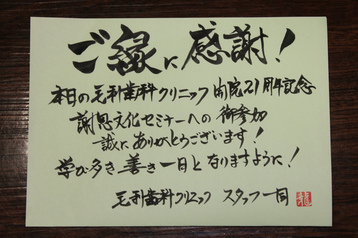 ご縁に感謝!
本日の毛利歯科クリニック開院21周年記念
謝恩文化セミナーへの御参加
誠にありがとうございます!
学び多き善き一日となりますように!
毛利歯科クリニック スタッフ一同